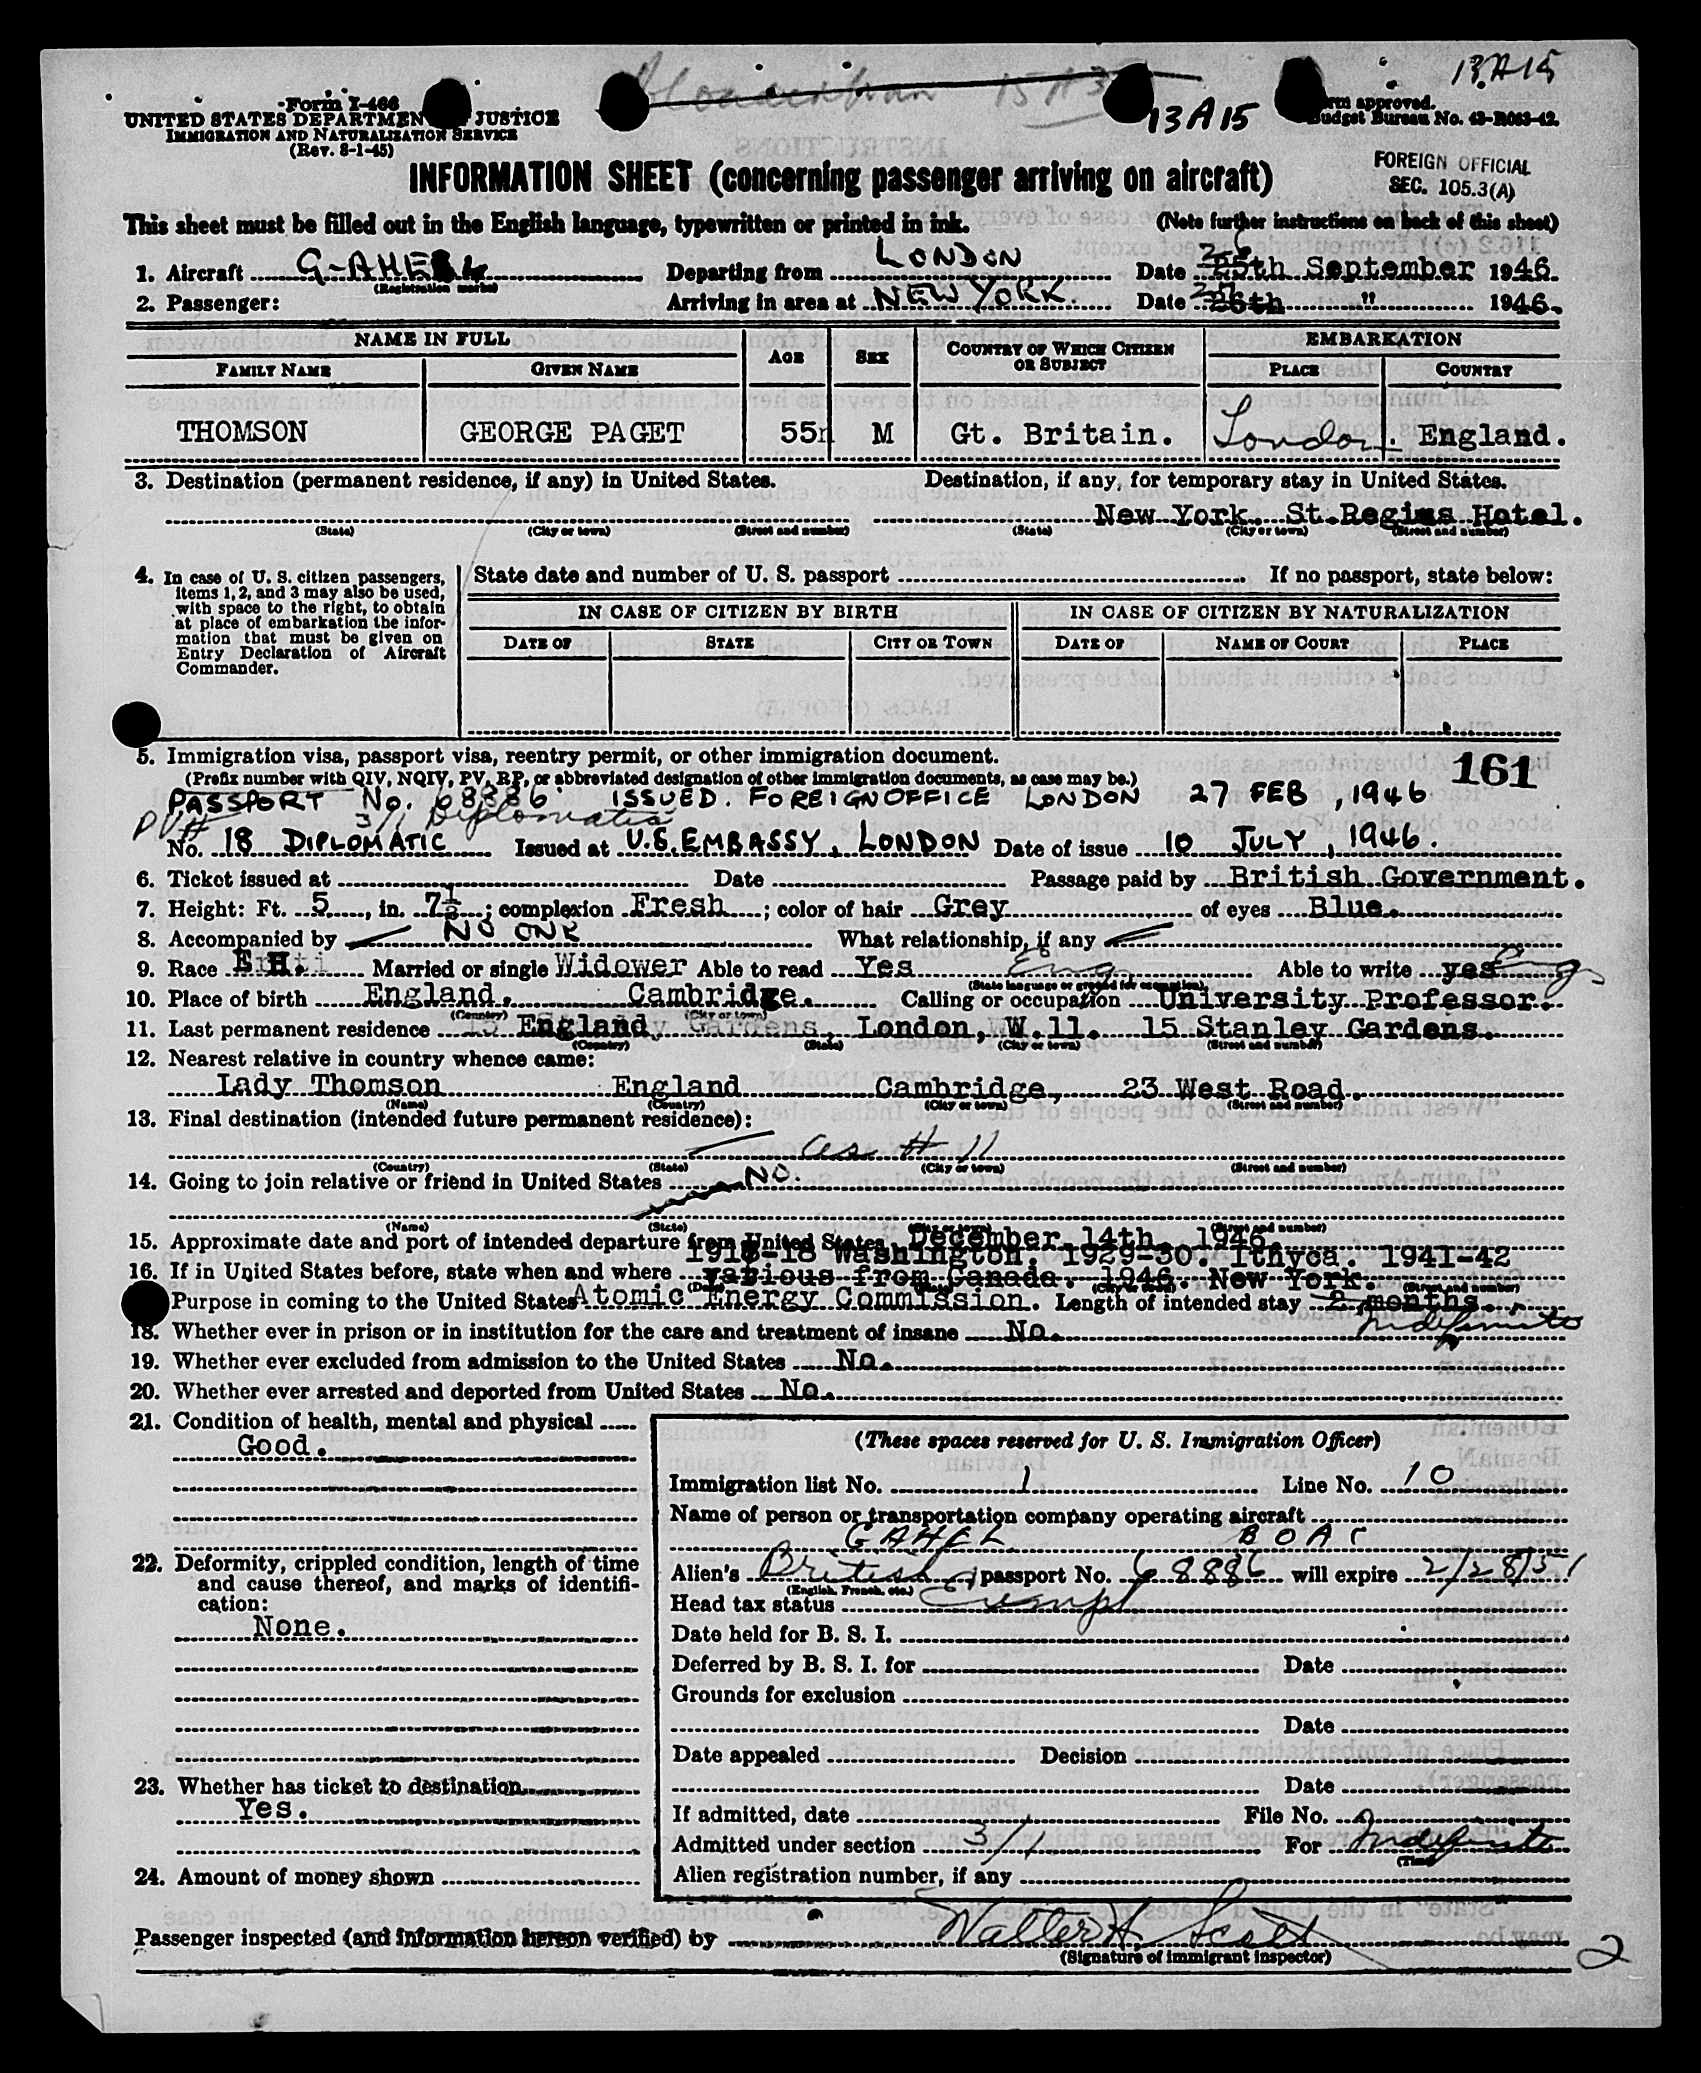 13 A 15
Form I-466
UNITED STATES DEPARTMENT JUSTICE
IMMIGRATION AND NATURALIZATION SERVICE
(Rev. 8-1-45)
15 A 3
13 A 15
Form approved.
Budget Bureau No. 43-R063-42.
INFORMATION SHEET (concerning passenger arriving on aircraft)
FOREIGN OFFICIAL
SEC. 105.3(A)
This sheet must be filled out in the English language, typewritten or printed in ink. (Note further instructions on back of this sheet)
1. Aircraft G-AHE Departing from LONDON Date 26 25th September 1946.
(Registration marks)
2. Passenger: Arriving in area at NEW YORK. Date 27 26th " 1946.
NAME IN FULL AGE SEX COUNTRY OF WHICH CITIZEN OR SUBJECT EMBARKATION
FAMILY NAME GIVEN NAME PLACE COUNTRY
THOMSON GEORGE PAGET 55 M Gt. Britain. London. England.
3. Destination (permanent residence, if any) in United States. Destination, if any, for temporary stay in United States.
New York. St.Regis Hotel.
(State) (City or town) (Street and number) (State) (City or town) (Street and number)
4. In case of U. S. citizen passengers, items 1, 2, and 3 may also be used, with space to the right, to obtain at place of embarkation the information that must be given on Entry Declaration of Aircraft Commander.
State date and number of U. S. passport . If no passport, state below:
IN CASE OF CITIZEN BY BIRTH IN CASE OF CITIZEN BY NATURALIZATION
DATE OF STATE CITY OR TOWN DATE OF NAME OF COURT PLACE
5. Immigration visa, passport visa, reentry permit, or other immigration document. 161
(Prefix number with QIV, NQIV, PV, RP, or abbreviated designation of other immigration documents, as case may be.)
PASSPORT No. 68886 ISSUED. FOREIGN OFFICE LONDON 27 FEB, 1946
PV# 3/1 Diplomatic
No. 18 DIPLOMATIC Issued at U.S. EMBASSY, LONDON Date of issue 10 JULY, 1946.
6. Ticket issued at Date Passage paid by British Government.
7. Height: Ft. 5, in. 7½; complexion Fresh; color of hair Grey of eyes Blue.
8. Accompanied by NO ONE What relationship, if any
9. Race Married or single Widower Able to read Yes Eng. Able to write yes Eng
(State language or ground for exemption)
10. Place of birth England. Cambridge. Calling or occupation University Professor.
(Country) (City or town)
11. Last permanent residence England London, W.11. 15 Stanley Gardens.
(Country) (State) (City or town) (Street and number)
12. Nearest relative in country whence came:
Lady Thomson England Cambridge, 23 West Road.
(Name) (Country) (City or town) (Street and number)
13. Final destination (intended future permanent residence):
as # 11
(Country) (State) (City or town) (Street and number)
14. Going to join relative or friend in United States NO.
(Name) (State) (City or town) (Street and number)
15. Approximate date and port of intended departure from United States December 14th. 1946.
1918-18 Washington. 1929-30. Ithyca. 1941-42
16. If in United States before, state when and where various from Canada. 1946. New York.
(Date) (State) (City or town) (Street and number)
Purpose in coming to the United States Atomic Energy Commission. Length of intended stay 2 months.
Indefinite
18. Whether ever in prison or in institution for the care and treatment of insane No.
19. Whether ever excluded from admission to the United States No.
20. Whether ever arrested and deported from United States No.
21. Condition of health, mental and physical
Good.
22. Deformity, crippled condition, length of time and cause thereof, and marks of identification:
None.
23. Whether has ticket to destination
Yes.
24. Amount of money shown
(These spaces reserved for U. S. Immigration Officer)
Immigration list No. 1 Line No. 10
Name of person or transportation company operating aircraft
GAHEL BOAC
Alien's British passport No. 68886 will expire 2/28/51
(English, French, etc.)
Head tax status Exempt
Date held for B. S. I.
Deferred by B. S. I. for Date
Grounds for exclusion
Date
Date appealed Decision
Date
If admitted, date File No.
Admitted under section 3/1 For Indefinite
(Time)
Alien registration number, if any
Passenger inspected (and information hereon verified) by Walter H. Scott
(Signature of immigrant inspector)
2